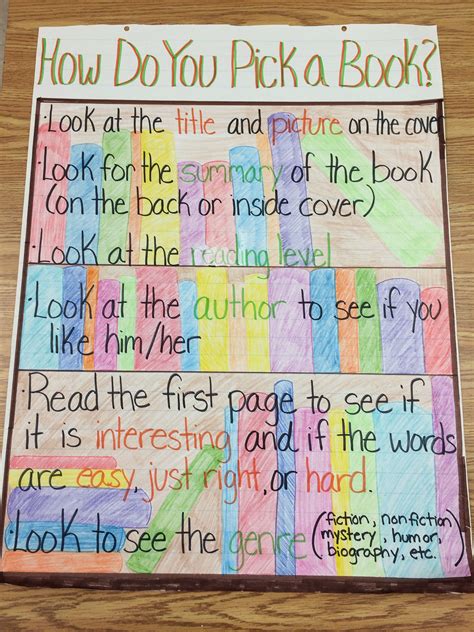 How Do You Pick a Book?
·Look at the title and picture on the cover
·Look for the summary of the book
(on the back or inside cover)
·Look at the reading level
·Look at the author to see if you
like him/her
·Read the first page to see if
it is interesting and if the words
are easy, just right, or hard.
·Look to see the genre (fiction, nonfiction,
mystery, humor,
biography, etc.)